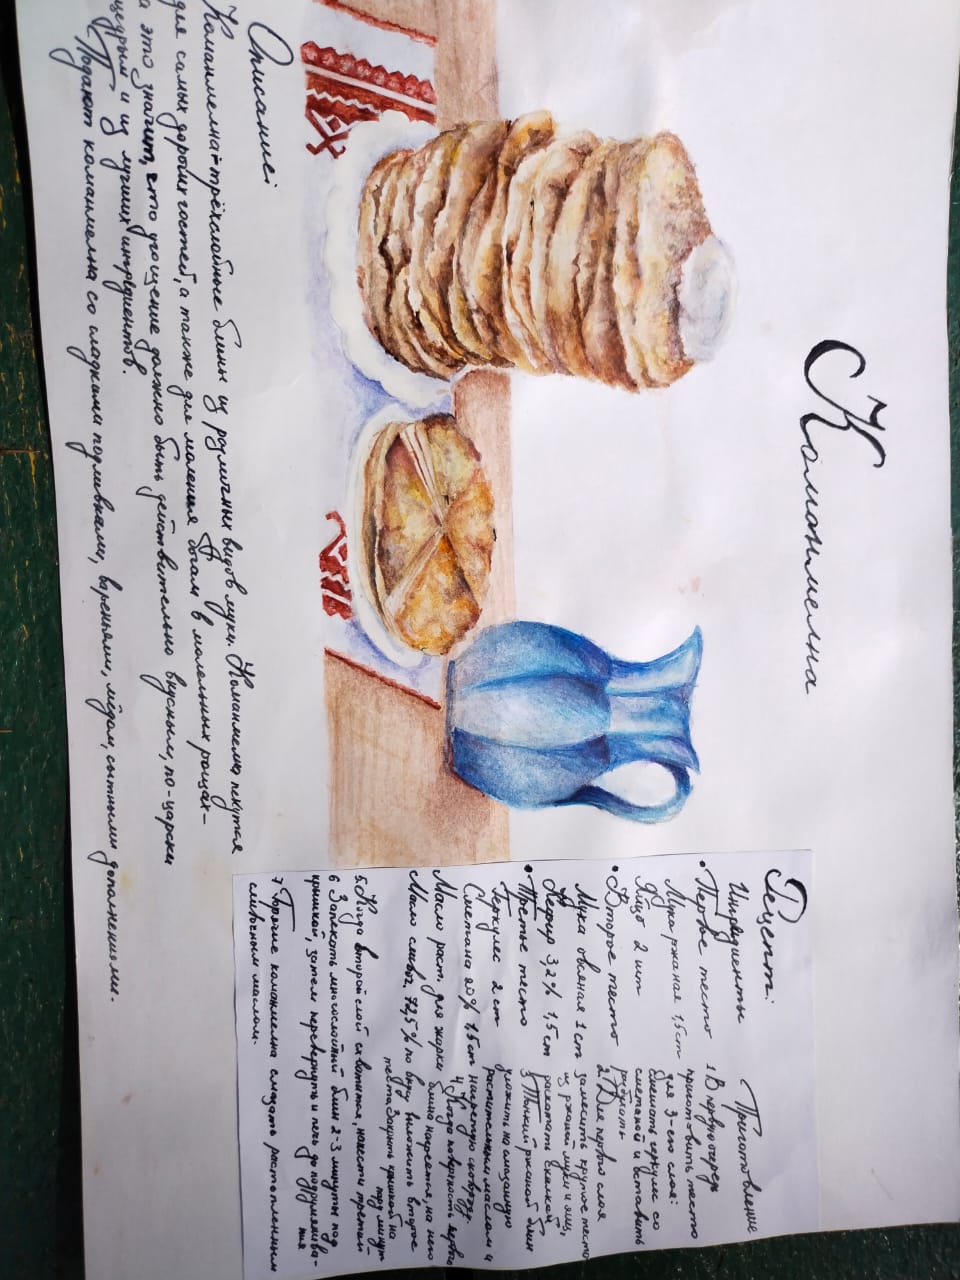 Команмелна
Описание:
Команмелна - трёхслойные блины из различных видов муки. Команмелна пекутся
для самых дорогих гостей, а также для моления богам в молельных рощах -
а это значит, что угощение должно быть действительно вкусным, по-царски
щедрым и из лучших ингредиентов.
Подают команмелна со сладкими подливками, вареньями, мёдом, сытными дополнениями.
Рецепт:
Ингредиенты
• Первое тесто
Мука ржаная 1,5 ст
Яйцо 2 шт
• Второе тесто
Мука овсяная 1 ст
Кефир 3,2% 1,5 ст
• Третье тесто
Геркулес 2 ст
Сметана 20% 1.5 ст
Масло раст. для жарки
Масло сливоч. 72,5%
Приготовление
1 В первую очередь
приготовить тесто
для 3-его слоя:
смешать геркулес со
сметаной и оставить
разбухать
2 Для первого слоя
замесить крутое тесто
из ржаной муки и яиц,
раскатать скалкой
3 Тонкий ржаной блин
уложить на смазанную
растительным маслом и
нагретую сковороду.
4 Когда поверхность первого
блина нагреется, на него
по верху выложить второе
тесто. Закрыть крышкой на
пару минут
5. Когда второй слой схватится, нанести третий
6 Запекать многослойный блин 2-3 минуты под
крышкой, затем перевернуть и печь до подрумянива-
ния
7 Горячие команмелна смазать растопленным
сливочным маслом.